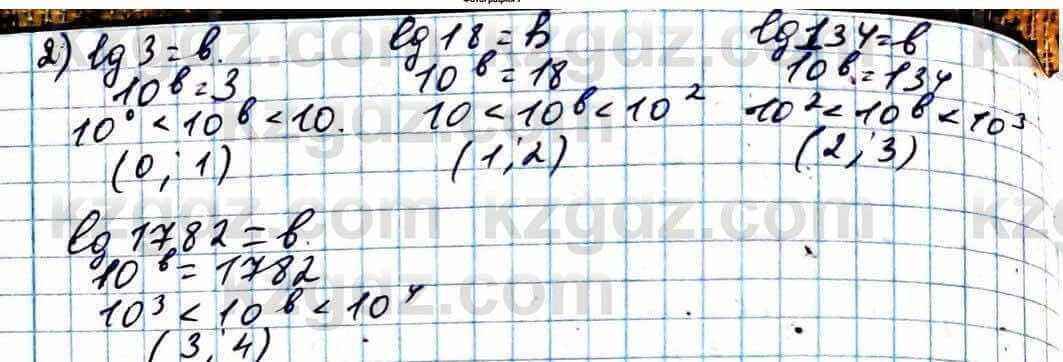 2) lg 3 = b.
10^b = 3
10^0 < 10^b < 10.
(0; 1)
lg 18 = b
10^b = 18
10 < 10^b < 10^2
(1; 2)
lg 134 = b
10^b = 134
10^2 < 10^b < 10^3
(2; 3)
lg 1782 = b.
10^b = 1782
10^3 < 10^b < 10^4
(3; 4)
kzgdz.com kzgdz.com
kzgdz.com
kzgdz.com kzgdz.com
kzgdz.com